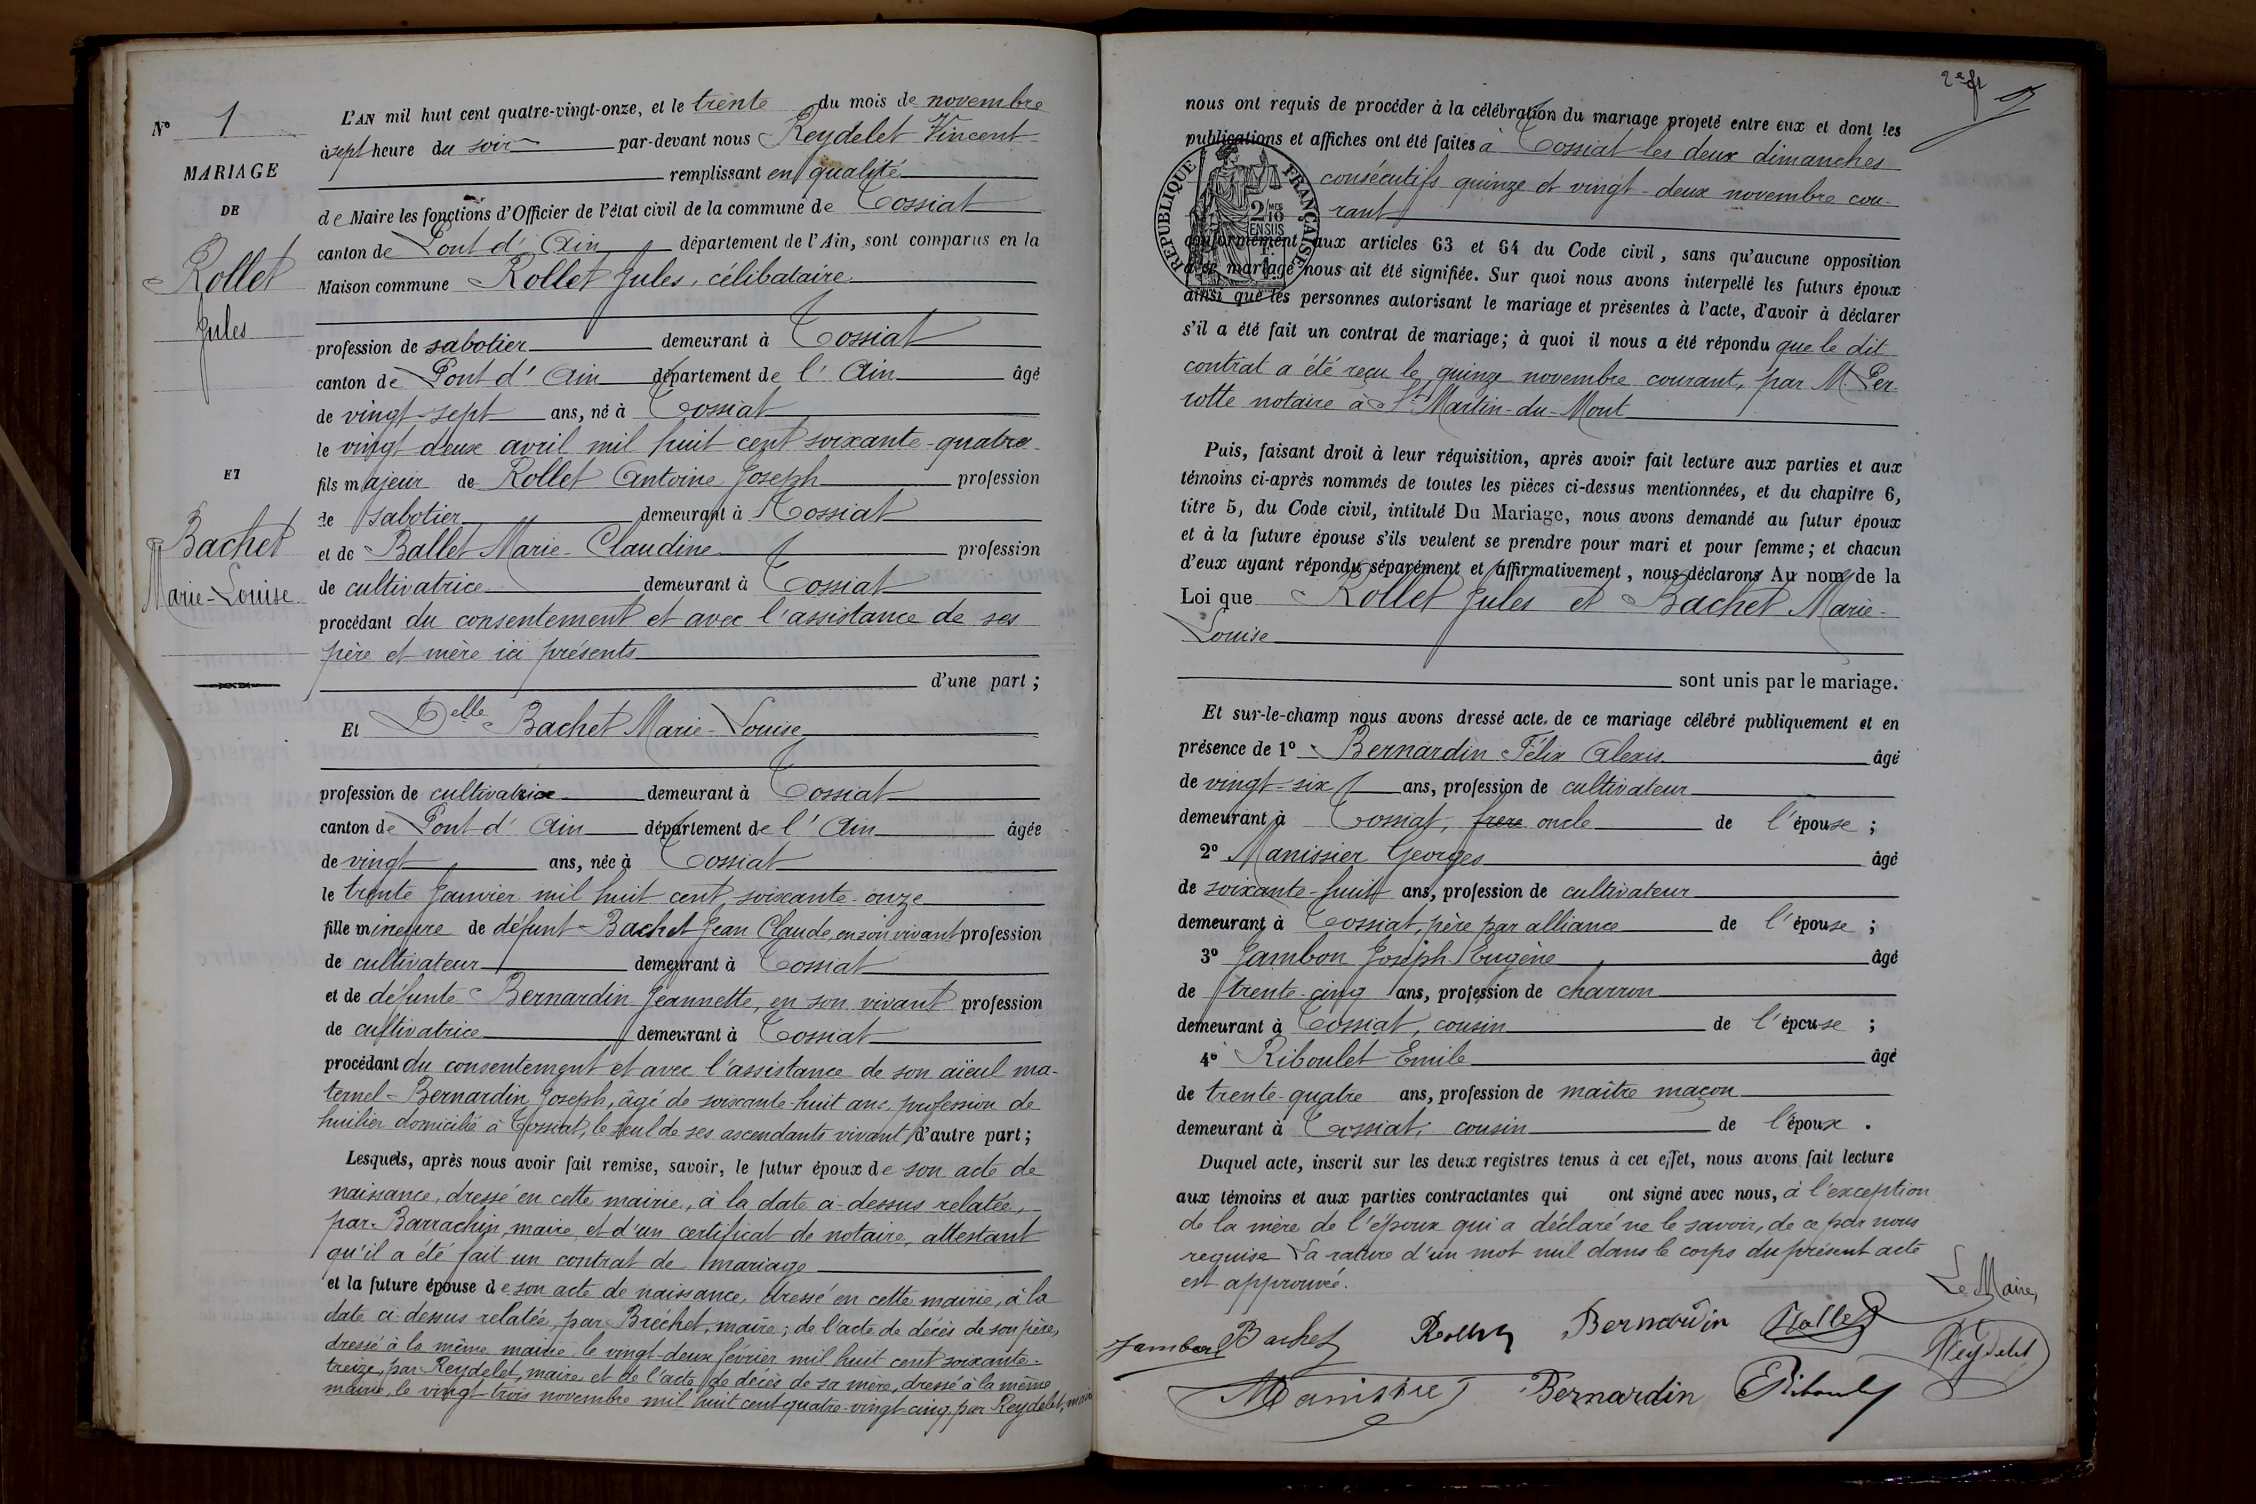 N° 1
MARIAGE
DE
Rollet
Jules
ET
Bachet
Marie-Louise
L'AN mil huit cent quatre-vingt-onze, et le trente du mois de novembre
à sept heure du soir par-devant nous Reydelet Vincent
remplissant en qualité
de Maire les fonctions d'Officier de l'état civil de la commune de Tossiat
canton de Pont d'Ain département de l'Ain, sont comparus en la
Maison commune Rollet Jules, célibataire
profession de sabotier demeurant à Tossiat
canton de Pont d'Ain département de l'Ain âgé
de vingt-sept ans, né à Tossiat
le vingt deux avril mil huit cent soixante-quatre
fils majeur de Rollet Antoine Joseph profession
de sabotier demeurant à Tossiat
et de Ballet Marie-Claudine profession
de cultivatrice demeurant à Tossiat
procédant du consentement et avec l'assistance de ses
père et mère ici présents
d'une part ;
Et Delle Bachet Marie-Louise
profession de cultivatrice demeurant à Tossiat
canton de Pont d'Ain département de l'Ain âgée
de vingt ans, née à Tossiat
le trente Janvier mil huit cent soixante-onze
fille mineure de défunt Bachet Jean Claude, en son vivant profession
de cultivateur demeurant à Tossiat
et de défunte Bernardin Jeannette, en son vivant profession
de cultivatrice demeurant à Tossiat
procédant du consentement et avec l'assistance de son aïeul ma-
ternel Bernardin Joseph, âgé de soixante-huit ans, profession de
huilier domicilié à Tossiat, le seul de ses ascendants vivant, d'autre part ;
Lesquels, après nous avoir fait remise, savoir, le futur époux de son acte de
naissance, dressé en cette mairie, à la date ci-dessus relatée,
par Barrachin, maire, et d'un certificat de notaire, attestant
qu'il a été fait un contrat de mariage
et la future épouse de son acte de naissance, dressé en cette mairie, à la
date ci-dessus relatée, par Bréchet, maire ; de l'acte de décès de son père,
dressé à la même mairie le vingt-deux février mil huit cent soixante-
treize, par Reydelet, maire et de l'acte de décès de sa mère, dressé à la même
mairie, le vingt-trois novembre mil huit cent quatre-vingt-cinq par Reydelet, maire
2e ft
nous ont requis de procéder à la célébration du mariage projeté entre eux et dont les
publications et affiches ont été faites à Tossiat les deux dimanches
consécutifs quinze et vingt-deux novembre cou-
rant
RÉPUBLIQUE FRANÇAISE
2 MES 10 EN SUS
conformément aux articles 63 et 64 du Code civil, sans qu'aucune opposition
à ce mariage nous ait été signifiée. Sur quoi nous avons interpellé les futurs époux
ainsi que les personnes autorisant le mariage et présentes à l'acte, d'avoir à déclarer
s'il a été fait un contrat de mariage ; à quoi il nous a été répondu que le dit
contrat a été reçu le quinze novembre courant, par M. Per-
rotte notaire à St Martin-du-Mont
Puis, faisant droit à leur réquisition, après avoir fait lecture aux parties et aux
témoins ci-après nommés de toutes les pièces ci-dessus mentionnées, et du chapitre 6,
titre 5, du Code civil, intitulé Du Mariage, nous avons demandé au futur époux
et à la future épouse s'ils veulent se prendre pour mari et pour femme ; et chacun
d'eux ayant répondu séparément et affirmativement, nous déclarons Au nom de la
Loi que Rollet Jules et Bachet Marie-
Louise
sont unis par le mariage.
Et sur-le-champ nous avons dressé acte de ce mariage célébré publiquement et en
présence de 1° Bernardin Félix Alexis âgé
de vingt-six ans, profession de cultivateur
demeurant à Tossiat, frere oncle de l'épouse ;
2° Manissier Georges âgé
de soixante-huit ans, profession de cultivateur
demeurant à Tossiat, père par alliance de l'épouse ;
3° Jambon Joseph Eugène âgé
de trente-cinq ans, profession de charron
demeurant à Tossiat, cousin de l'épouse ;
4° Riboulet Emile âgé
de trente-quatre ans, profession de maître maçon
demeurant à Tossiat, cousin de l'époux .
Duquel acte, inscrit sur les deux registres tenus à cet effet, nous avons fait lecture
aux témoins et aux parties contractantes qui ont signé avec nous, à l'exception
de la mère de l'époux qui a déclaré ne le savoir, de ce par nous
requise La rature d'un mot nul dans le corps du présent acte
est approuvée.
Le Maire,
Jambon Bachet Rollet Bernardin Rollet Reydelet
Manissier Bernardin E Riboulet